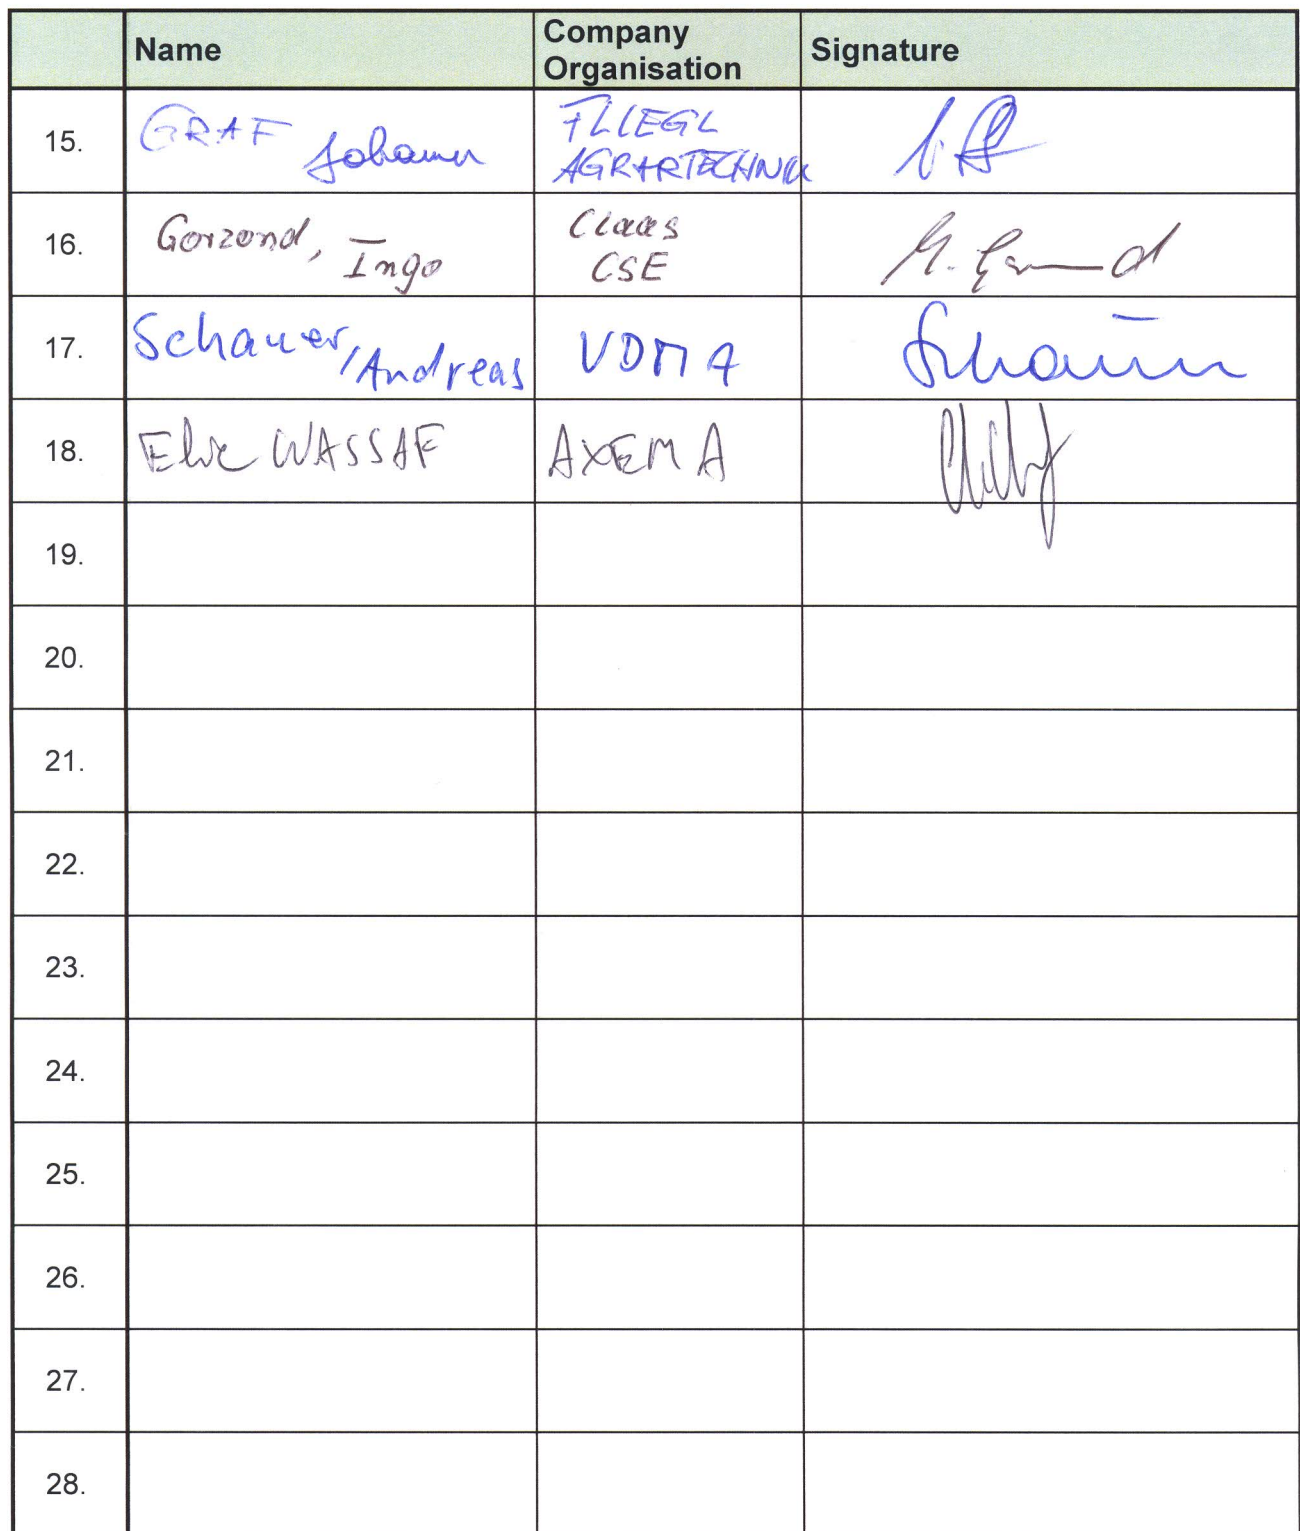 Name Company Organisation Signature
15. GRAF Johann FLIEGL AGRARTECHNIK
16. Gorzond, Ingo Claas CSE
17. Schauer, Andreas VDMA Schauer
18. Elie WASSAF AXEMA
19.
20.
21.
22.
23.
24.
25.
26.
27.
28.